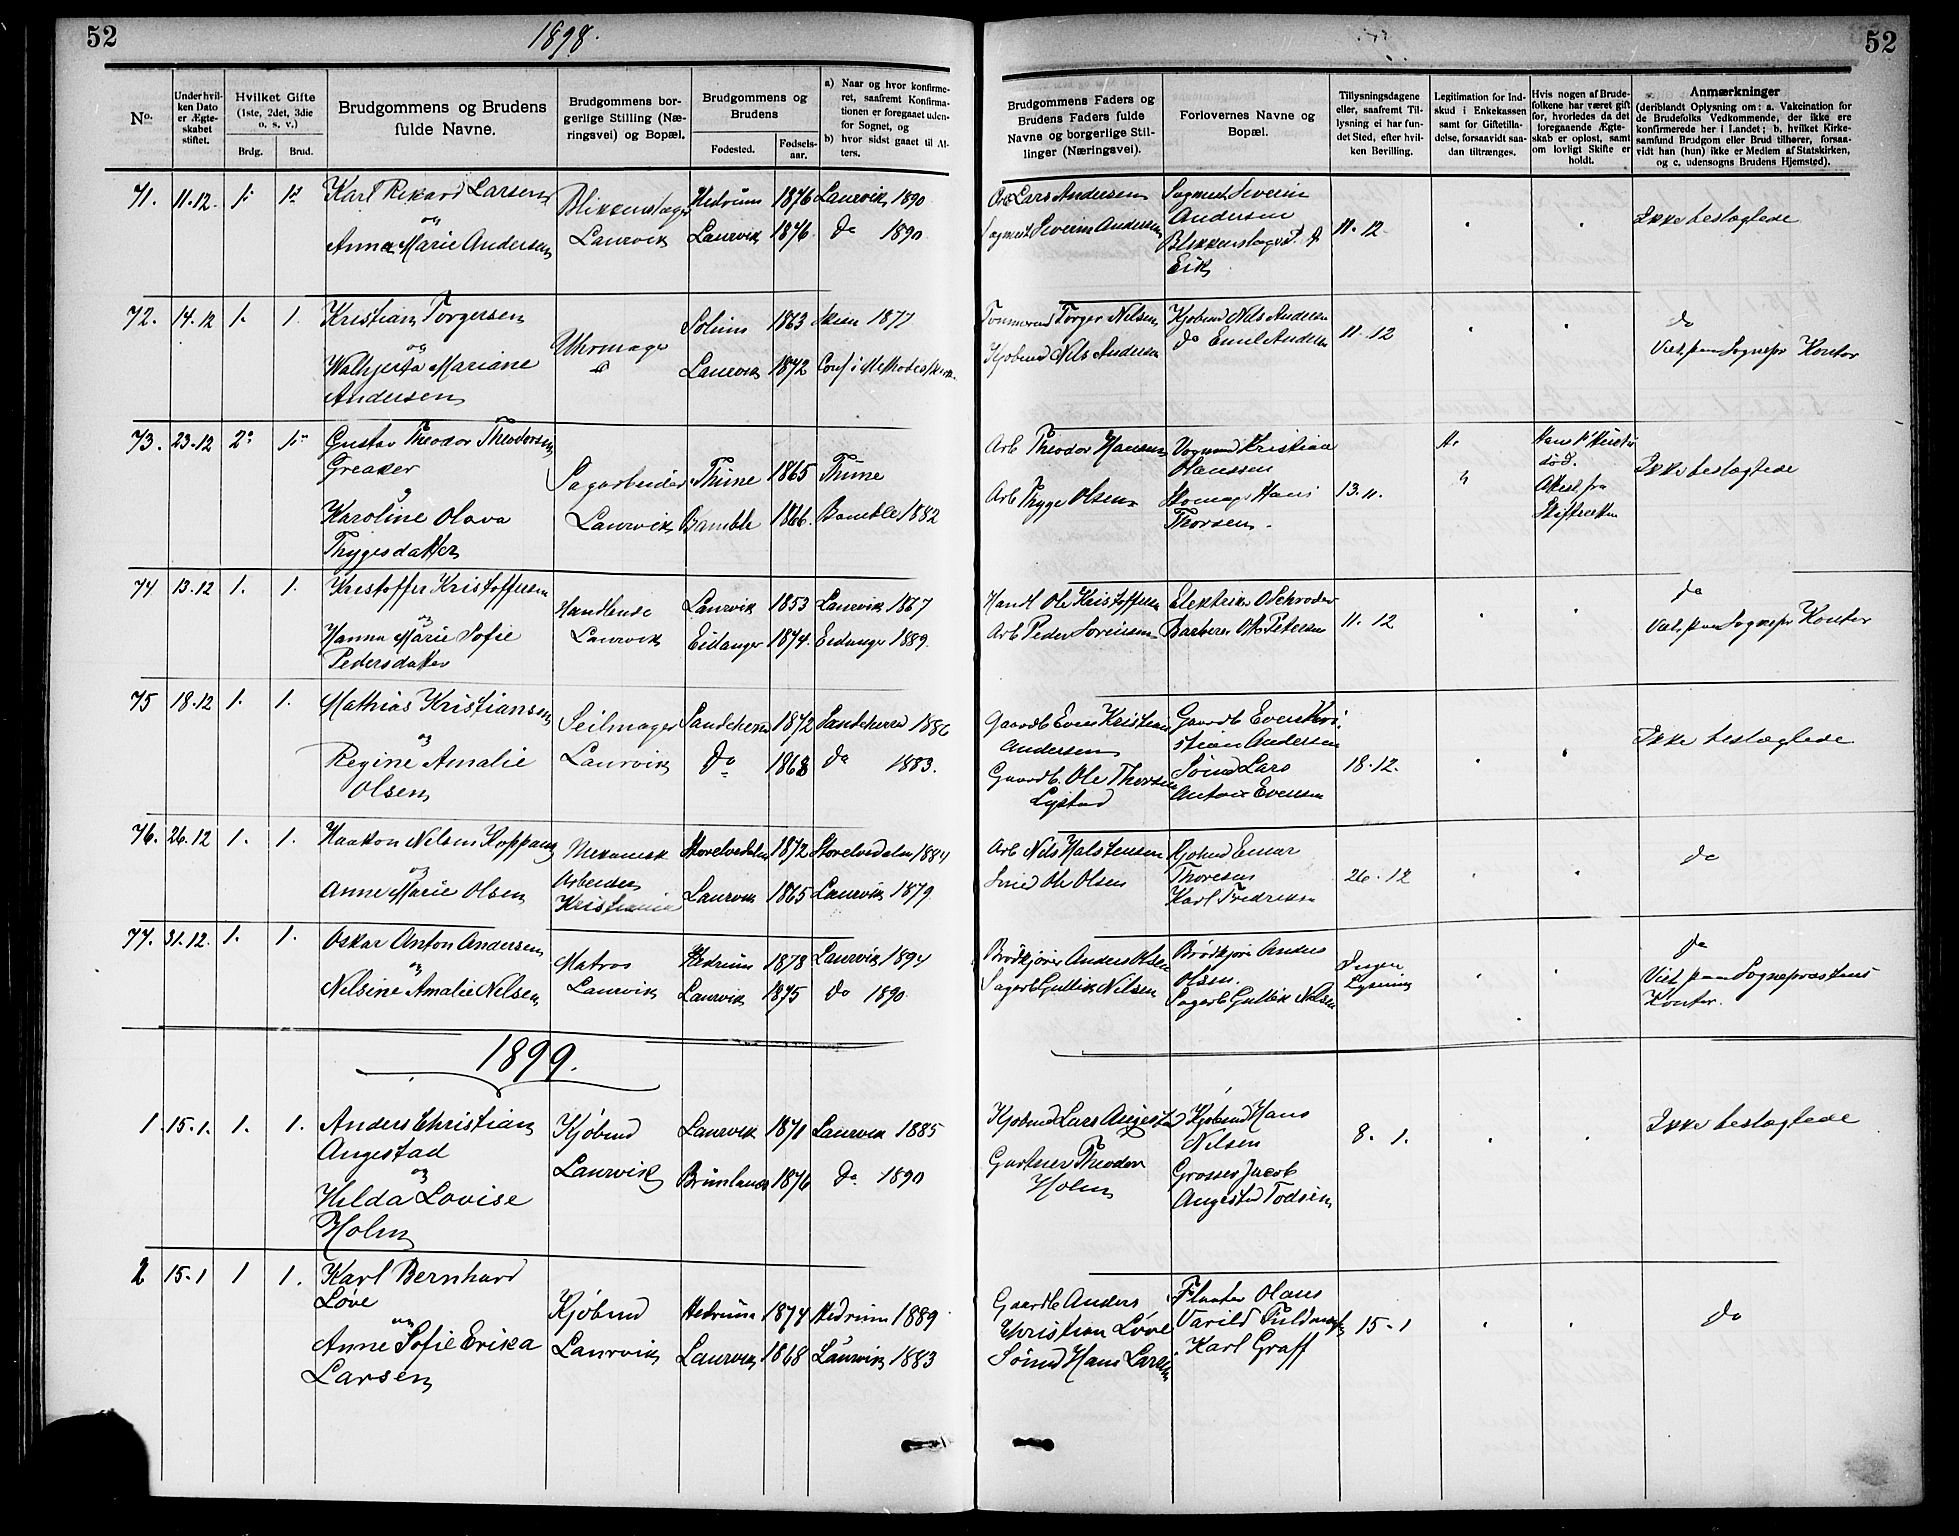 52
1898.
52
No.
Under hvilken Dato er Ægteskabet stiftet.
Hvilket Gifte (1ste, 2det, 3die o. s. v.)
Brdg.
Brud.
Brudgommens og Brudens fulde Navne.
Brudgommens borgerlige Stilling (Næringsvei) og Bopæl.
Brudgommens og Brudens
Fødested.
Fødselsaar.
a) Naar og hvor konfirmeret, saafremt Konfirmationen er foregaaet udenfor Sognet, og
b) hvor sidst gaaet til Alters.
Brudgommens Faders og Brudens Faders fulde Navne og borgerlige Stillinger (Næringsvei).
Forlovernes Navne og Bopæl.
Tillysningsdagene eller, saafremt Tillysning ei har fundet Sted, efter hvilken Bevilling.
Legitimation for Indskud i Enkekassen samt for Giftetilladelse, forsaavidt saadan tiltrænges.
Hvis nogen af Brudefolkene har været gift før, hvorledes da det foregaaende Ægteskab er opløst, samt om lovligt Skifte er holdt.
Anmærkninger
(deriblandt Oplysning om: a. Vakcination for de Brudefolks Vedkommende, der ikke ere konfirmerede her i Landet; b. hvilket Kirkesamfund Brudgom eller Brud tilhører, forsaavidt han (hun) ikke er Medlem af Statskirken, og c. udensogns Brudens Hjemsted).
71. 11.12. 1. 1.
Karl Rikard Larsen
og
Anna Marie Andersen
Blikkenslager
Laurvik
Hedrum 1876 Laurvik 1890
Laurvik 1876 do 1890
Arb Lars Andersen
Sagmest Severin Andersen
Sagmest Severin
Andersen
Eik
11.12
Ikke beslægtede
72. 14.12 1. 1.
Kristian Torgersen
og
Walhjerta Mariane
Andersen
Uhrmager
Solum 1863 Skien 1877
Laurvik 1872
Tømmermd Torger Nilsen
Kjøbmd Nils Andersen
Kjøbmd Nils Andersen
do Emil Andersen
11.12
do
Viet paa Sognepr Kontor
73. 23.12 2. 1.
Gustav Theodor Theodorsen
Greaker
og
Karoline Olava
Thygesdatter
Sagarbeider
Laurvik
Thune 1865 Thune
Bamble 1866. Bamble 1882
Arb Theodor Hansen
Arb Thyge Olsen
Vognmd Kristian
Olaussen
Skomag Hans
Thorsen.
13.11.
Hans 1. Hustr
død.
Attest fra
Skifteretten
Ikke beslægtede
74 13.12 1. 1.
Kristoffer Kristoffersen
og
Hanna Marie Sofie
Pedersdatter
Handlende
Laurvik
Laurvik 1853 Laurvik 1867
Eidanger 1874. Eidanger 1889.
Handl Ole Kristoffersen
Arb Peder Sørensen
Elektriker O Schrøder
Barberer Petersen
11.12
do
Viet paa Sognepr Kontor
75 18.12 1. 1.
Mathias Kristiansen
og
Regine Amalie
Olsen
Seilmager
Laurvik
Sandeherred 1872 Sandeherred 1886
do 1868 do 1883.
Gaardb Even Kristian
Andersen
Gaardb. Ole Thorsen
Lystad
Gaardb Even Kri-
stian Andersen
Sømd Lars
Anton Evensen
18.12.
Ikke beslægtede
76. 26.12 1. 1.
Haakon Nilsen Koppang
og
Anne Marie Olsen
Mekanisk
Arbeider
Kristiania
Storelvedalen 1872 Storelvedalen 1887
Laurvik 1865 Laurvik 1879
Arb Nils Halstensen
Smed Ole Olsen
Kjøbmd Einar
Thoresen
Karl Fredriksen
26.12
do
77. 31.12. 1. 1.
Oskar Anton Andersen
og
Nilsine Amalie Nilsen
Matros
Laurvik
Hedrum 1878 Laurvik 1894
Laurvik 1875 do 1890
Brødkjører Anders Olsen
Sagarb Gullik Nilsen
Brødkjører Anders
Olsen.
Sagarb Gullik Nilsen
Ingen
Lysning
do
Viet paa Sogneprestens
Kontor.
1899.
1 15.1. 1. 1.
Anders Christian
Angestad
og
Hilda Lovise
Holm
Kjøbmd
Laurvik
Laurvik 1871 Laurvik 1885
Brunlanes 1876 do 1890
Kjøbmd Lars Angestad
Gartner Theodor
Holm
Kjøbmd Hans
Nilsen
Grosser Jacob
Angestad Todsen
8.1.
Ikke beslægtede
2 15.1 1 1.
Karl Bernhard
Løve
og
Anne Sofie Erika
Larsen
Kjøbmd
Laurvik
Hedrum 1874 Hedrum 1889
Laurvik 1868 Laurvik 1883
Gaardb Anders
Christian Løve
Sømd Hans Larsen
Karl Graff
15.1
do